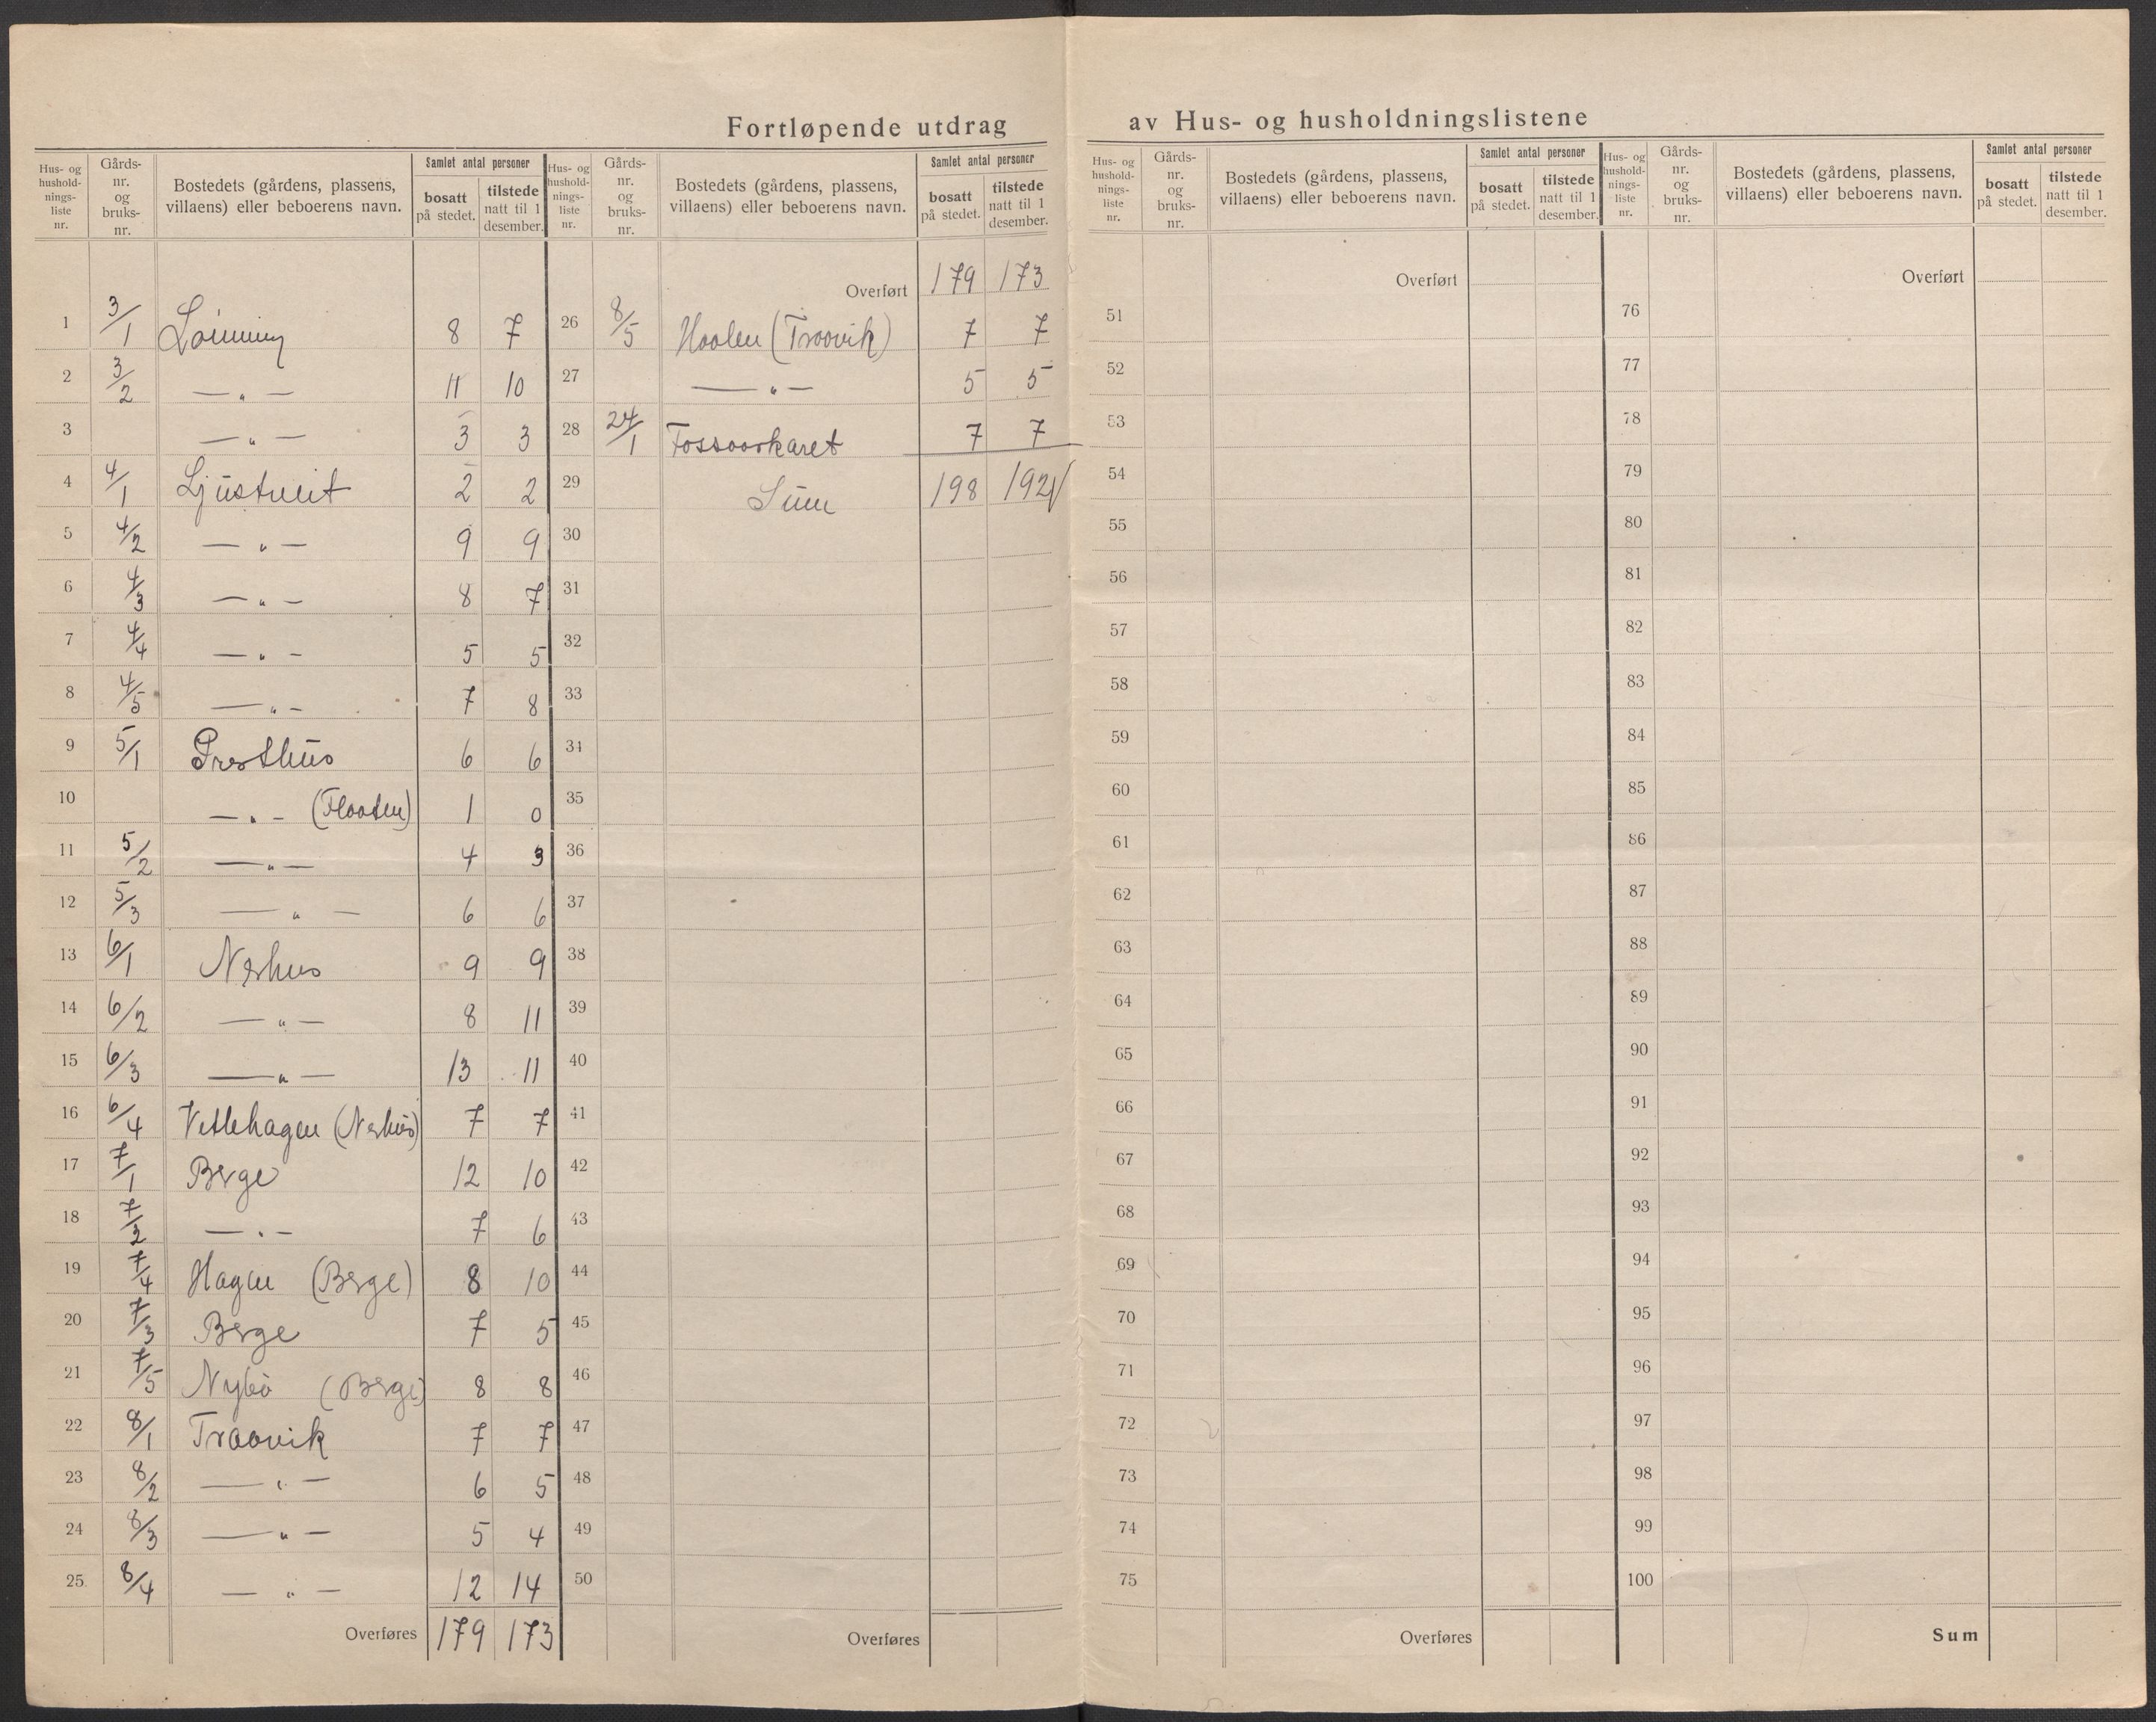 Fortløpende utdrag av Hus- og husholdningslistene
Hus- og hushold-nings-liste nr. | Gårds-nr. og bruks-nr. | Bostedets (gårdens, plassens, villaens) eller beboerens navn. | Samlet antal personer | bosatt på stedet. | tilstede natt til 1 desember.
1 3/1 Lönning 8 7
2 3/2 —„— 11 10
3 —„— 3 3
4 4/1 Ljüstveit 2 2
5 4/2 —„— 9 9
6 4/3 —„— 8 7
7 4/4 —„— 5 5
8 4/5 —„— 7 8
9 5/1 Presthüs 6 6
10 —„— (Flaaten) 1 0
11 5/2 —„— 4 3
12 5/3 —„— 6 6
13 6/1 Nerhus 9 9
14 6/2 —„— 8 11
15 6/3 —„— 13 11
16 6/4 Vetlehagen (Nerhüs) 7 7
17 7/1 Berge 12 10
18 7/2 —„— 7 6
19 7/4 Hagen (Berge) 8 10
20 7/3 Berge 7 5
21 7/5 Nybö (Berge) 8 8
22 8/1 Traavik 7 7
23 8/2 —„— 6 5
24 8/3 —„— 5 4
25 8/4 —„— 12 14
Overføres 179 173
Hus- og hushold-nings-liste nr. | Gårds-nr. og bruks-nr. | Bostedets (gårdens, plassens, villaens) eller beboerens navn. | Samlet antal personer | bosatt på stedet. | tilstede natt til 1 desember.
Overført 179 173
26 8/5 Haalen (Traavik) 7 7
27 —„— 5 5
28 24/1 Fossaarkaret 7 7
29 Süm 198 192
30
31
32
33
34
35
36
37
38
39
40
41
42
43
44
45
46
47
48
49
50
Overføres
Hus- og hushold-nings-liste nr. | Gårds-nr. og bruks-nr. | Bostedets (gårdens, plassens, villaens) eller beboerens navn. | Samlet antal personer | bosatt på stedet. | tilstede natt til 1 desember.
Overført
51
52
53
54
55
56
57
58
59
60
61
62
63
64
65
66
67
68
69
70
71
72
73
74
75
Overføres
Hus- og hushold-nings-liste nr. | Gårds-nr. og bruks-nr. | Bostedets (gårdens, plassens, villaens) eller beboerens navn. | Samlet antal personer | bosatt på stedet. | tilstede natt til 1 desember.
Overført
76
77
78
79
80
81
82
83
84
85
86
87
88
89
90
91
92
93
94
95
96
97
98
99
100
Sum